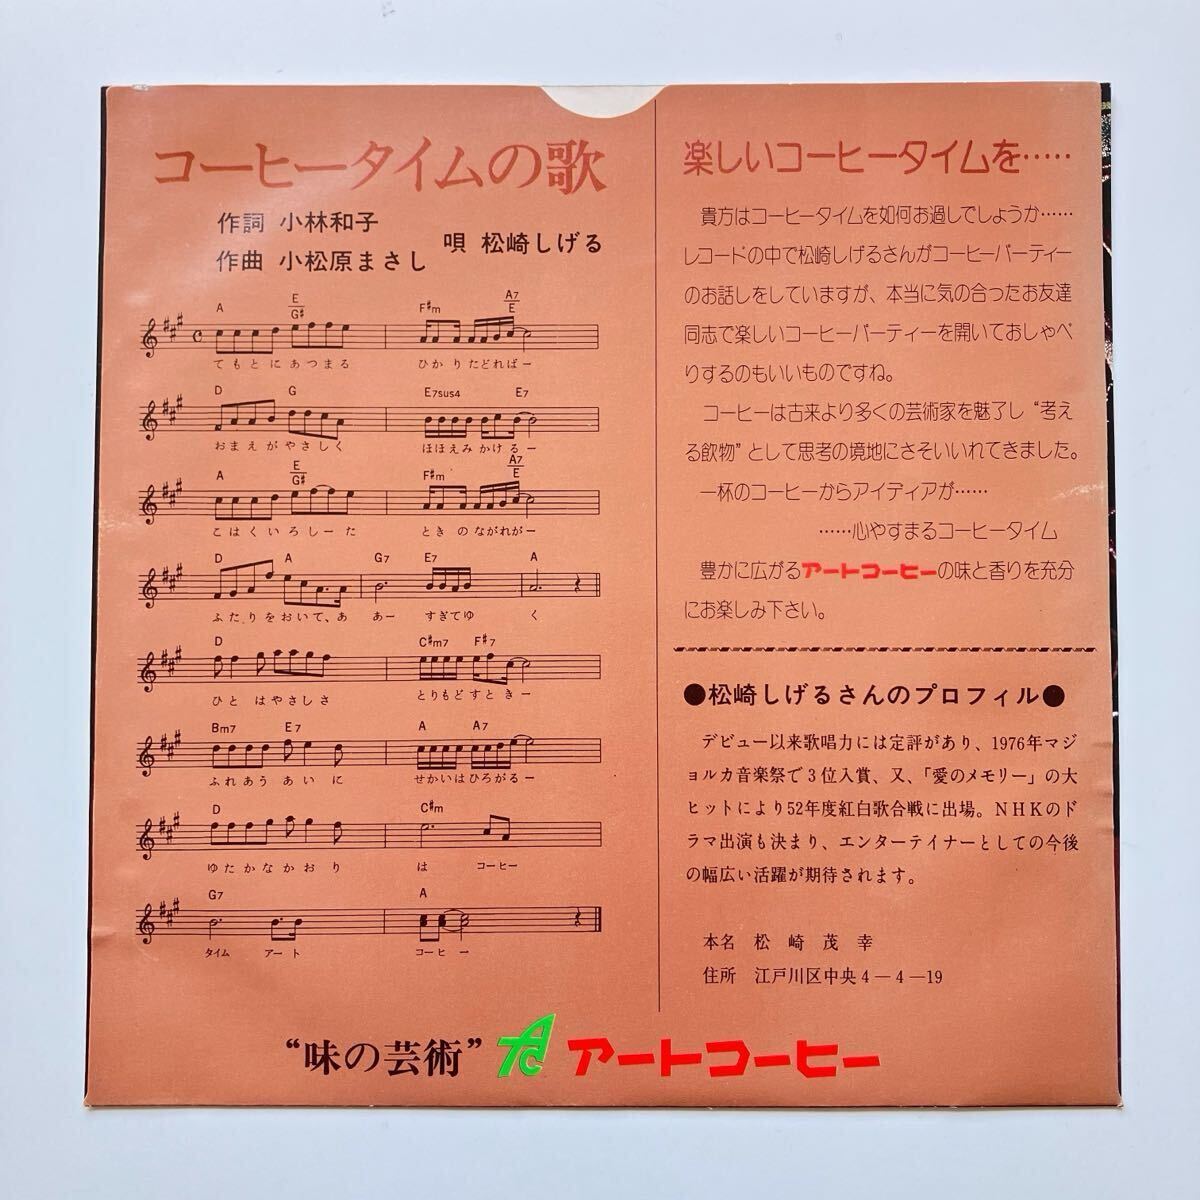 コーヒータイムの歌
作詞 小林和子
作曲 小松原まさし
唄 松崎しげる
A E/G# F#m A7/E
てもとにあつまる ひかりたどればー
D G E7sus4 E7
おまえがやさしく ほほえみかけるー
A E/G# F#m A7/E
こはくいろしーた ときのながれがー
D A G7 E7 A
ふたりをおいて、あ あー すぎてゆ く
D C#m7 F#7
ひと はやさしさ とりもどすときー
Bm7 E7 A A7
ふれあうあいに せかいはひろがるー
D C#m
ゆたかなかおり は コーヒー
G7 A
タイム アート コーヒー
楽しいコーヒータイムを……
貴方はコーヒータイムを如何お過しでしょうか……
レコードの中で松崎しげるさんがコーヒーパーティー
のお話しをしていますが、本当に気の合ったお友達
同志で楽しいコーヒーパーティーを開いておしゃべ
りするのもいいものですね。
コーヒーは古来より多くの芸術家を魅了し“考え
る飲物”として思考の境地にさそいいれてきました。
一杯のコーヒーからアイディアが……
……心やすまるコーヒータイム
豊かに広がるアートコーヒーの味と香りを充分
にお楽しみ下さい。
●松崎しげるさんのプロフィル●
デビュー以来歌唱力には定評があり、1976年マジ
ョルカ音楽祭で3位入賞、又、「愛のメモリー」の大
ヒットにより52年度紅白歌合戦に出場。NHKのド
ラマ出演も決まり、エンターテイナーとしての今後
の幅広い活躍が期待されます。
本名 松崎茂幸
住所 江戸川区中央4－4－19
“味の芸術” AC アートコーヒー